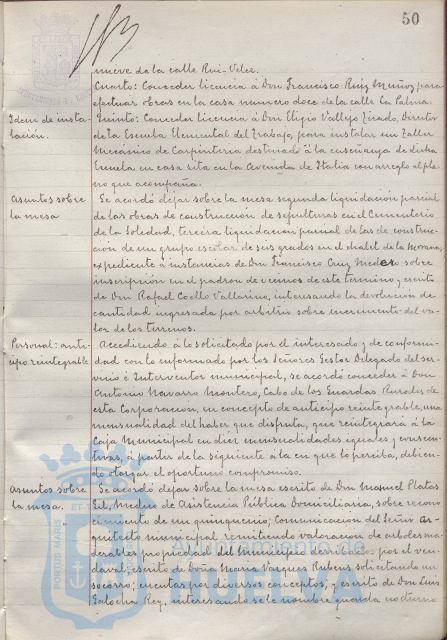 50
nueve de la calle Rui-Velez.
Cuarto: Conceder licencia á Don Francisco Ruiz Muñoz para
efectuar obras en la casa numero doce de la calle La Palma.
Idem de insta-
lación.
Quinto: Conceder licencia á Don Eligio Vallejo Director
de la Escuela Elemental del Trabajo, para instalar un Taller
Mecánico de Carpinteria destinado á la enseñanza de dicha
Escuela en casa sita en la Avenida de Italia con arreglo al pla-
no que acompaña.
Asuntos sobre
la mesa
Se acordó dejar sobre la mesa segunda liquidación parcial
de las obras de construcción de sepulturas en el Cementerio
de la Soledad, tercera liquidación parcial de las de construc-
ción de un grupo escolar de seis grados en el chalet de la Morana,
expediente á instancias de Don Francisco Cruz Medero sobre
inscripción en el padron de vecinos de este termino y escrito
de Don Rafael Coello Vallarino, interesando la devolución de
cantidad ingresada por arbitrio sobre incremento del va-
lor de los terrenos.
Personal: anti-
cipo reintegrable
Accediendo á lo solicitado por el interesado y de conformi-
dad con lo informado por los Señores Gestor Delegado del ser-
vicio é Interventor municipal, se acordó conceder á Don
Antonio Navarro Montero, Cabo de los Guardas Rurales de
esta Corporación, en concepto de anticipo reintegrable, una
mensualidad del haber que disfruta, que reintegrará á la
Caja Municipal en diez mensualidades iguales y consecu-
tivas, á partir de la siguiente á la en que lo perciba, debien-
do otorgar el oportuno compromiso.
Asuntos sobre
la mesa.
Se acordó dejar sobre la mesa escrito de Don Manuel Platas
Gil, Medico de Asistencia Pública Domiciliaria, sobre recono-
cimiento de un quinquenio; Comunicación del Señor Ar-
quitecto municipal remitiendo valoración de arboles ma-
derables propiedad del Municipio derribados por el ven-
daval; escrito de Doña Maria Vazquez Rubens solicitando un
socorro; cuentas por diversos conceptos; y escrito de Don Luis
Galocha Rey, interesando se le nombre guarda nocturno
PORTUS MARIS ET
Ayuntamiento de
HUELVA